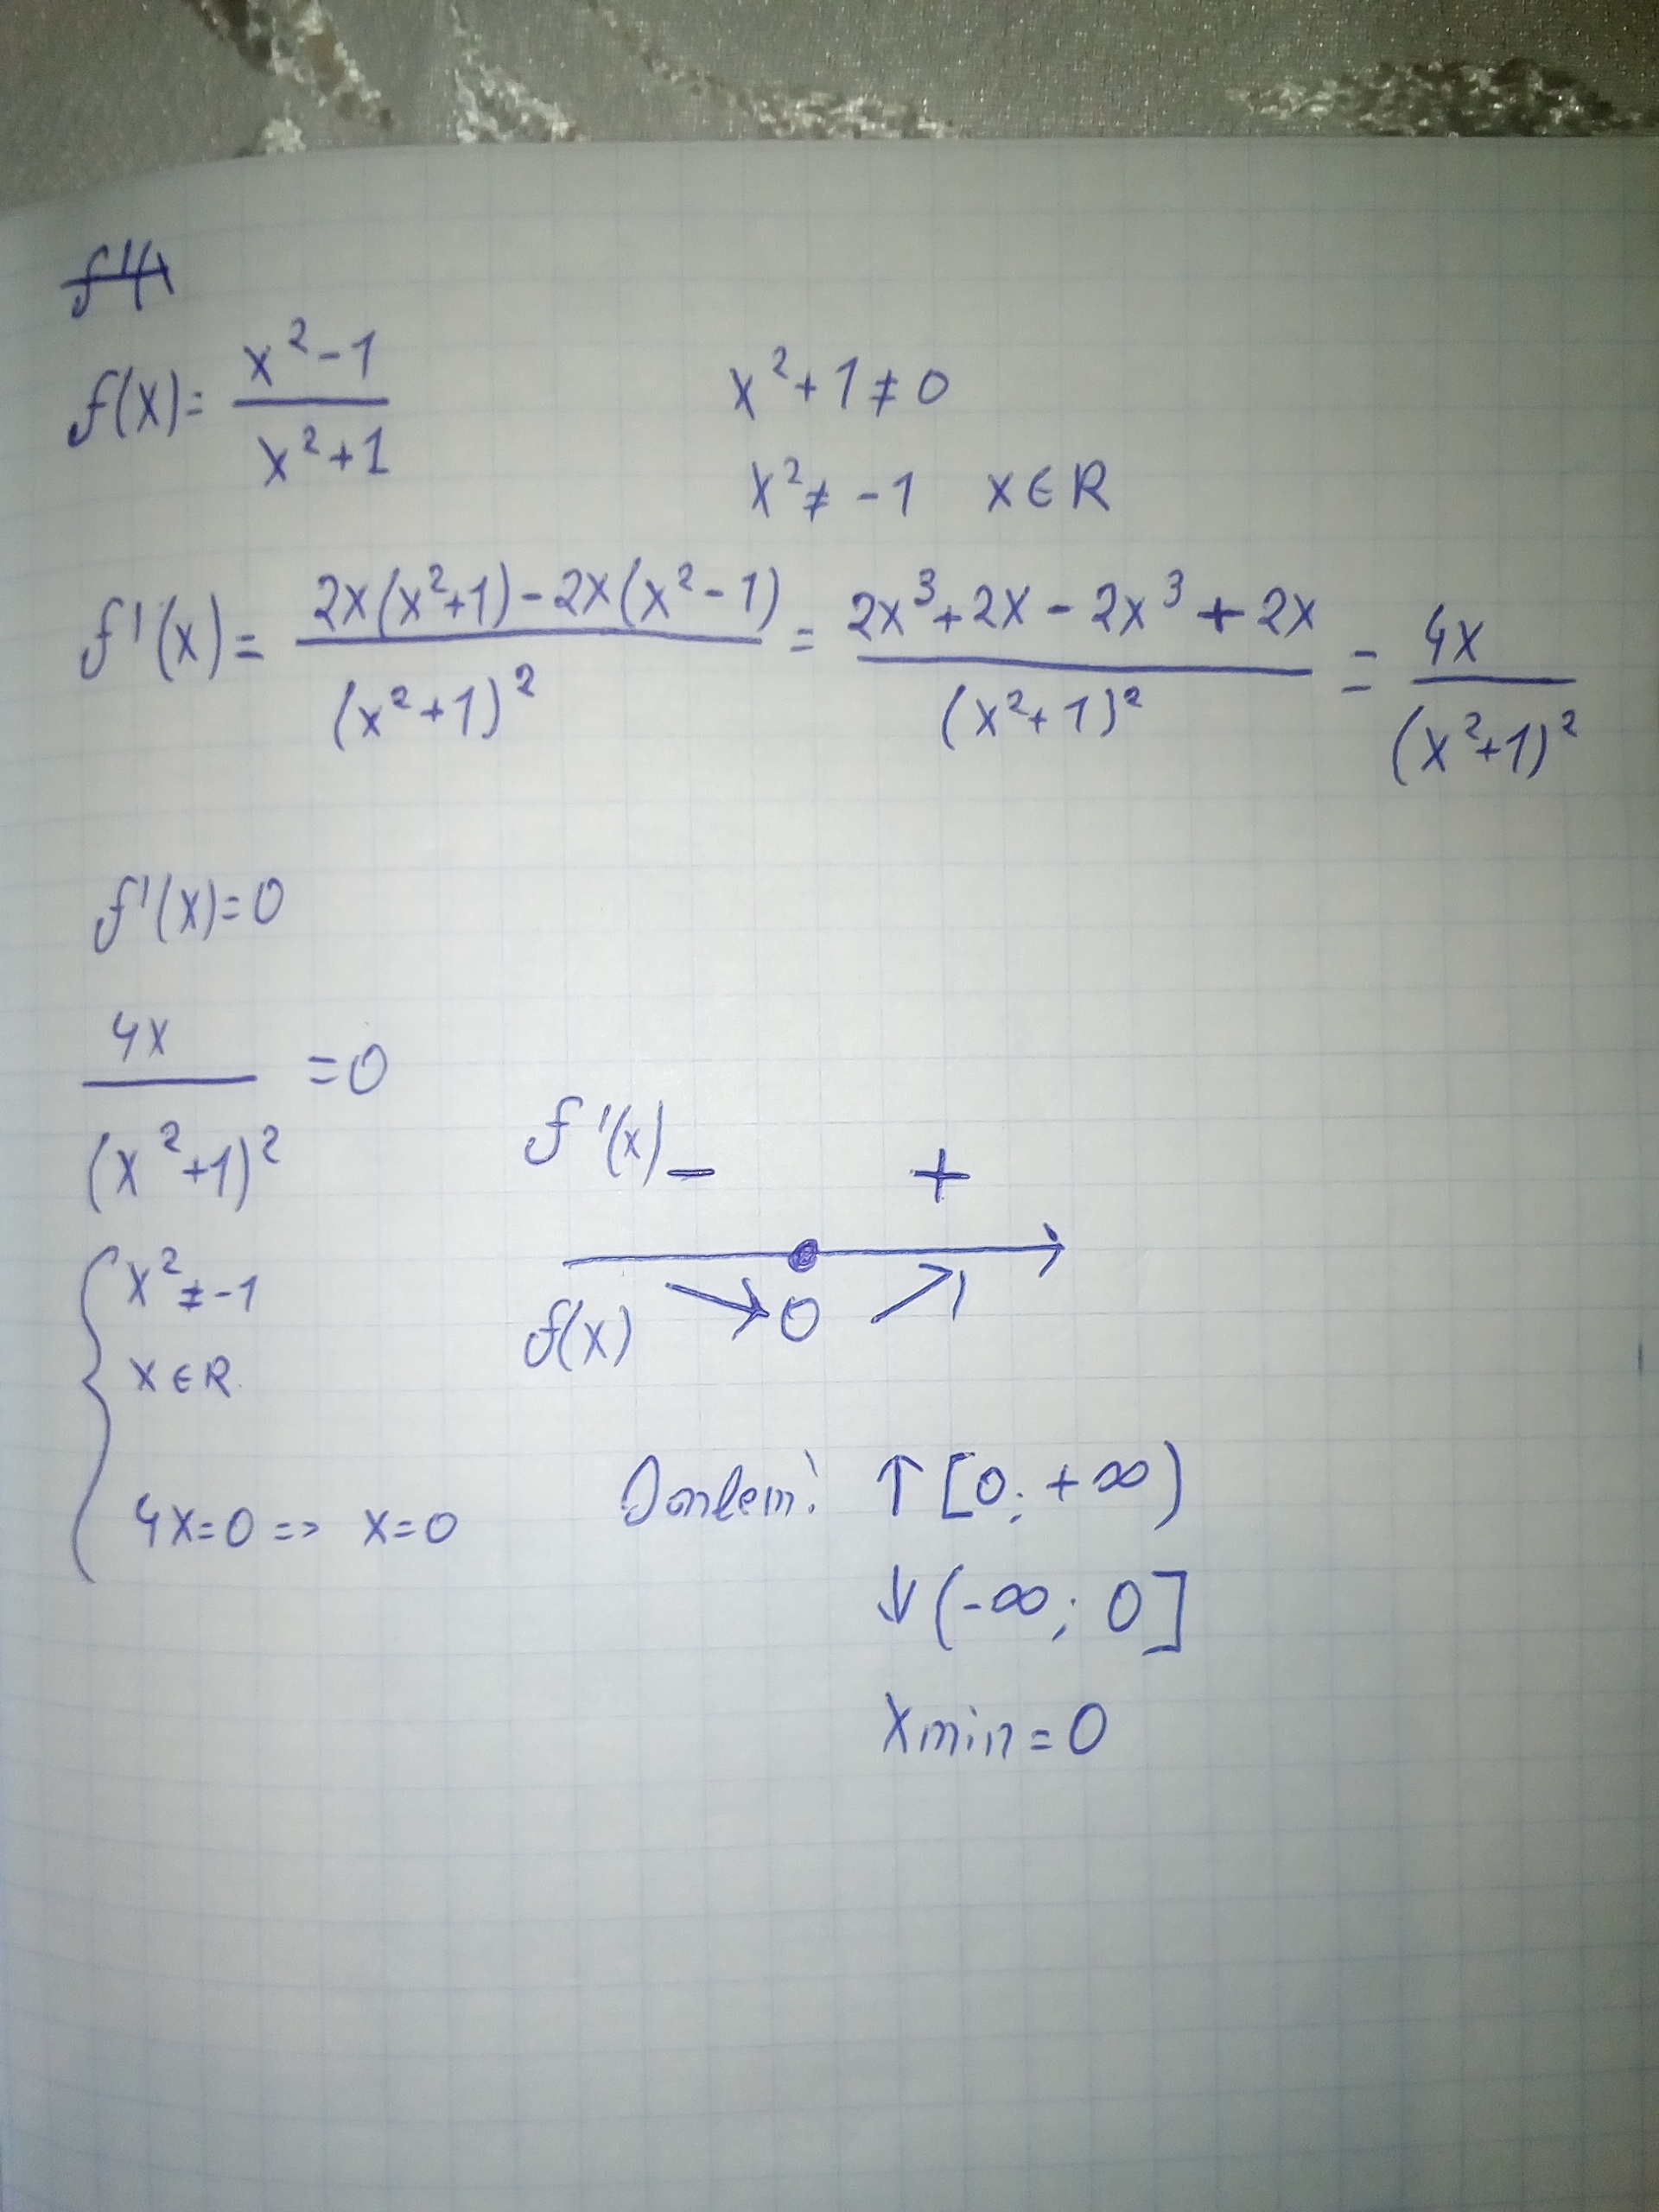 f(x)= x²-1 / x²+1
x²+1≠0
x²≠-1 x∈R
f'(x)= 2x(x²+1)-2x(x²-1) / (x²+1)² = 2x³+2x-2x³+2x / (x²+1)² = 4x / (x²+1)²
f'(x)=0
4x / (x²+1)² =0
{ x²≠-1
x∈R
4x=0 => x=0
f'(x) - +
f(x) ↘ 0 ↗
↑ [0; +∞)
↓ (-∞; 0]
xmin=0